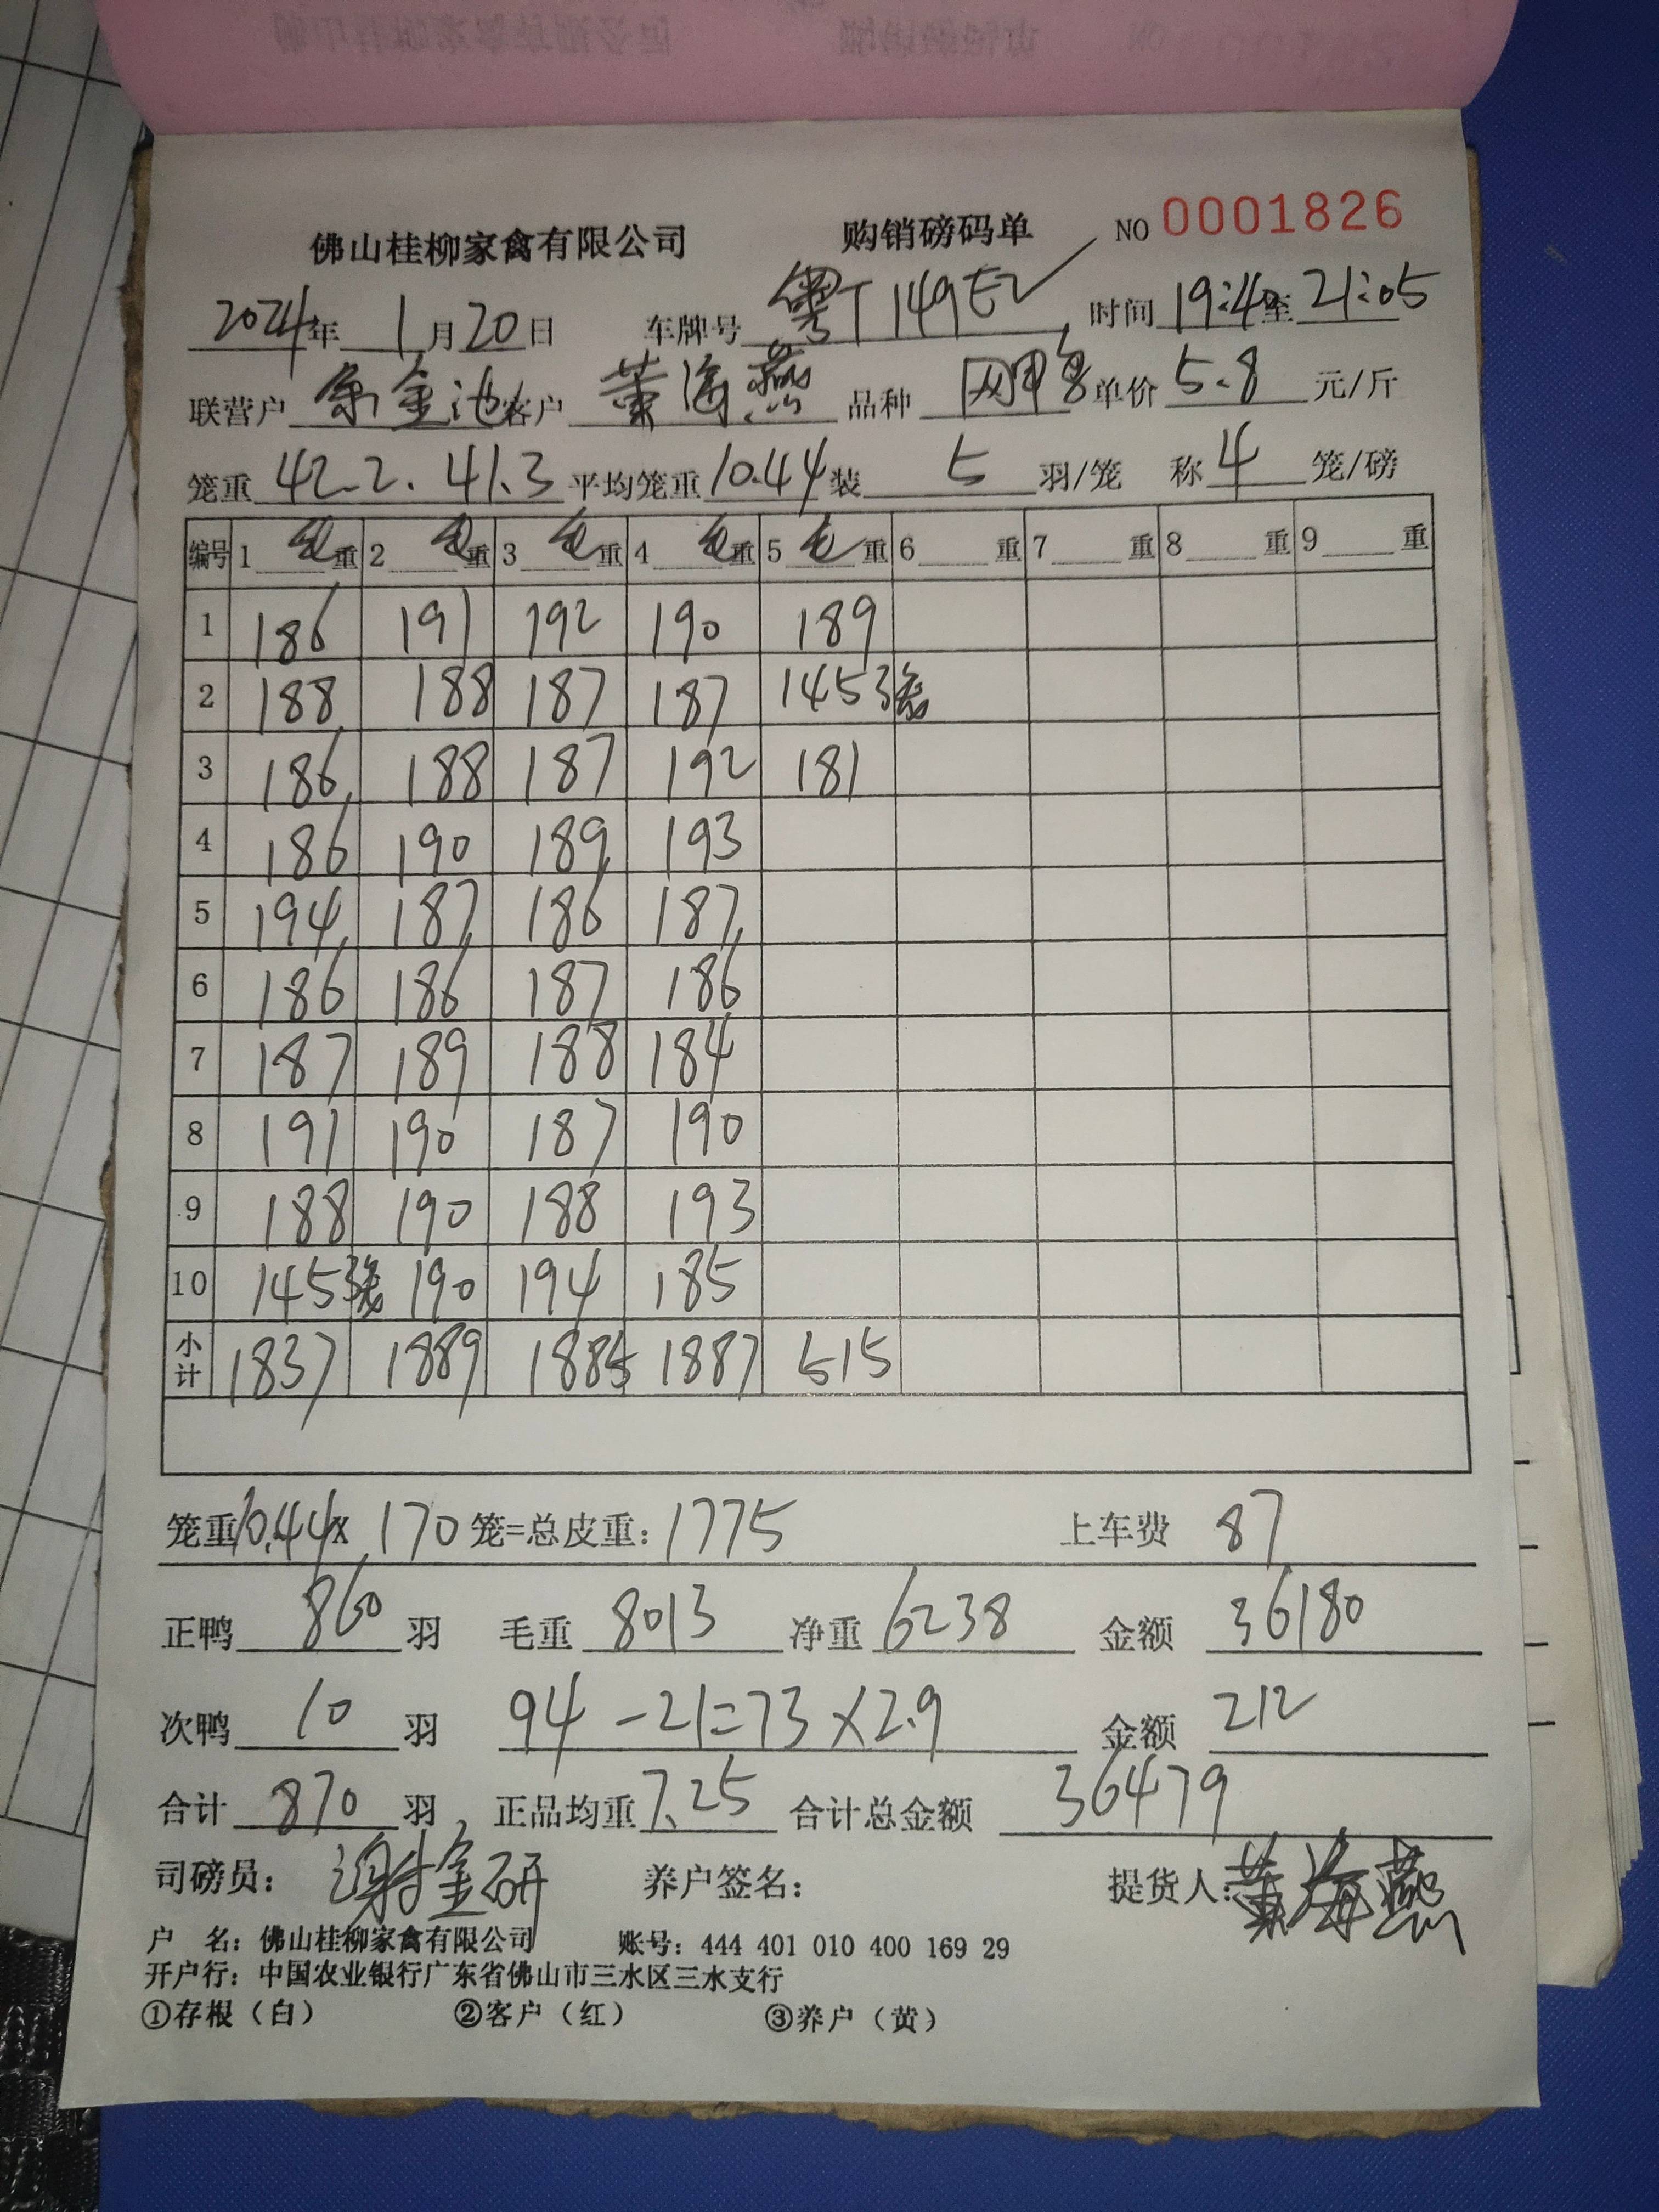 佛山桂柳家禽有限公司 购销磅码单 NO 0001826
2024年1月20日 车牌号 粤T149E2 时间 19:40至21:05
联营户 余金池 客户 黄海燕 品种 单价 5.8 元/斤
笼重 42.2. 41.3 平均笼重 10.44 装 5 羽/笼 称 4 笼/磅
编号 1 毛重 2 毛重 3 毛重 4 毛重 5 毛重 6 重 7 重 8 重 9 重
1 186 191 192 190 189
2 188 188 187 187 145 3笼
3 186 188 187 192 181
4 186 190 189 193
5 194 187 186 187
6 186 186 187 186
7 187 189 188 184
8 191 190 187 190
9 188 190 188 193
10 145 3笼 190 194 185
小计 1837 1889 1885 1887 515
笼重10.44X 170 笼=总皮重: 1775 上车费 87
正鸭 860 羽 毛重 8013 净重 6238 金额 36180
次鸭 10 羽 94-21=73×2.9 金额 212
合计 870 羽 正品均重 7.25 合计总金额 36479
司磅员: 谢金研 养户签名: 提货人: 黄海燕
户 名: 佛山桂柳家禽有限公司 账号: 444 401 010 400 169 29
开户行: 中国农业银行广东省佛山市三水区三水支行
①存根（白） ②客户（红） ③养户（黄）